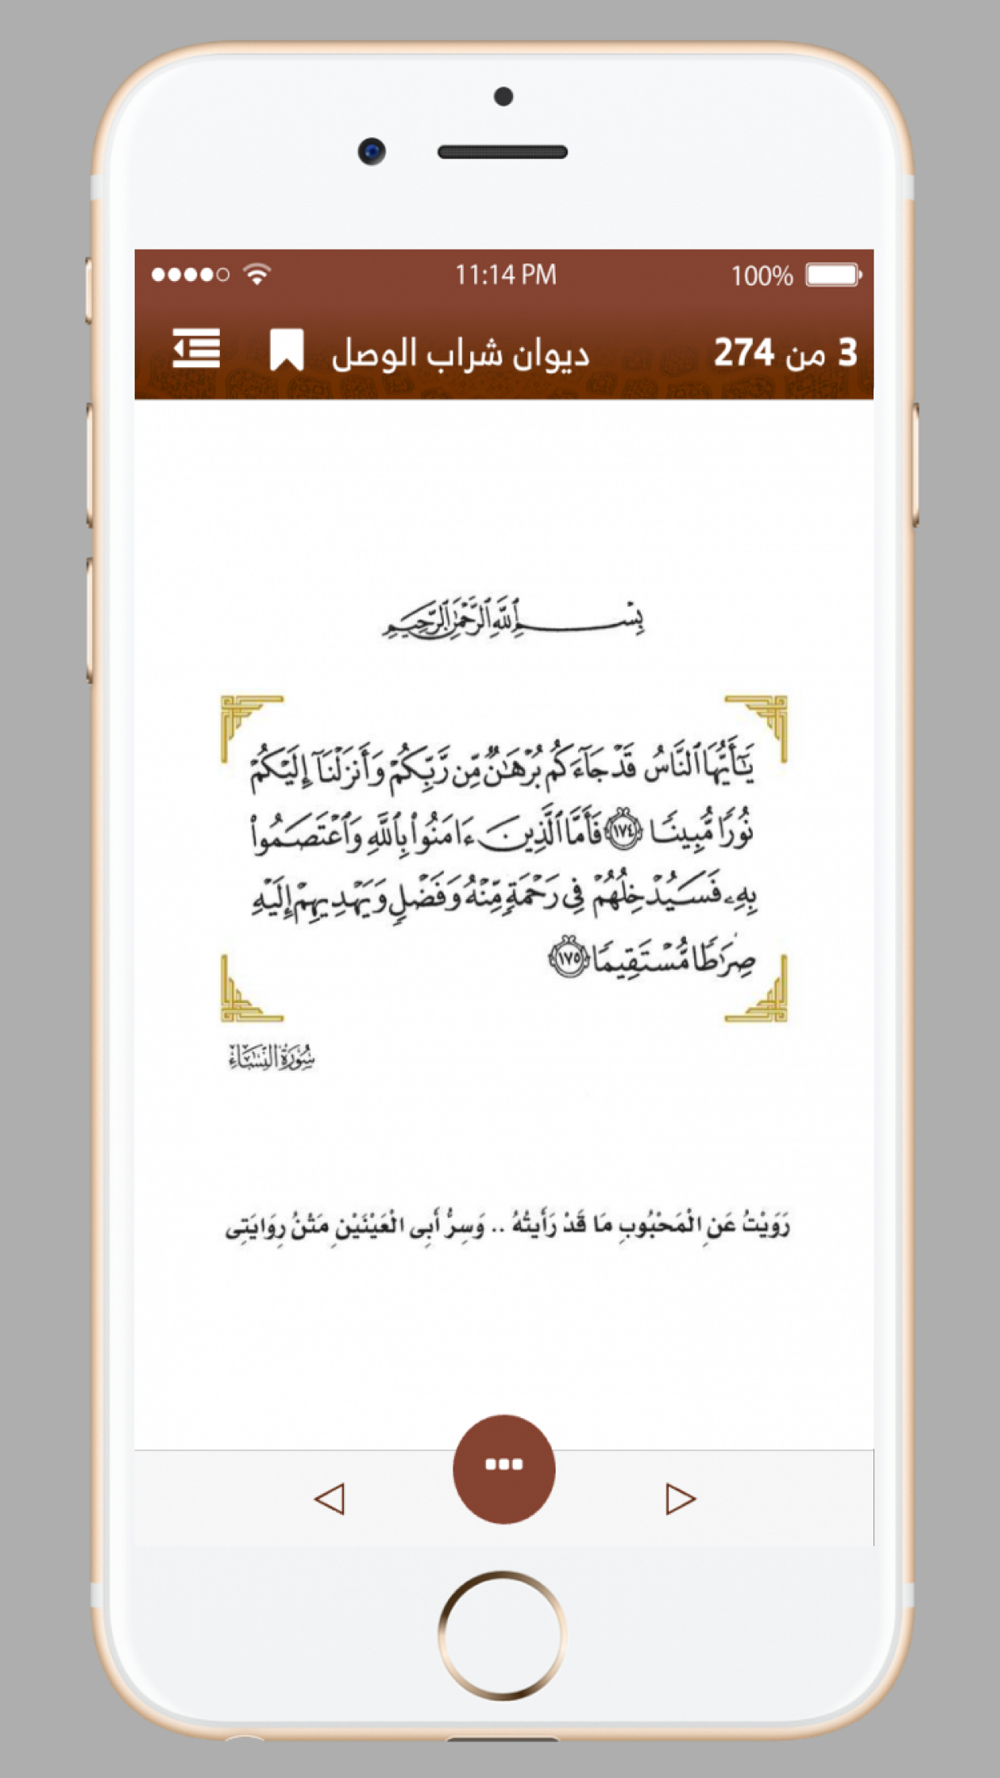 11:14 PM
100%
3 من 274
ديوان شراب الوصل
بِسْمِ ٱللَّهِ ٱلرَّحْمَٰنِ ٱلرَّحِيمِ
يَٰٓأَيُّهَا ٱلنَّاسُ قَدْ جَآءَكُم بُرْهَٰنٌ مِّن رَّبِّكُمْ وَأَنزَلْنَآ إِلَيْكُمْ
نُورًا مُّبِينًا ١٧٤ فَأَمَّا ٱلَّذِينَ ءَامَنُوا۟ بِٱللَّهِ وَٱعْتَصَمُوا۟
بِهِۦ فَسَيُدْخِلُهُمْ فِى رَحْمَةٍ مِّنْهُ وَفَضْلٍ وَيَهْدِيهِمْ إِلَيْهِ
صِرَٰطًا مُّسْتَقِيمًا ١٧٥
سُورَةُ النِّسَاءِ
رَوَيْتُ عَنِ الْمَحْبُوبِ مَا قَدْ رَأَيتُهُ .. وَسِرُّ أَبِى الْعَيْنَيْنِ مَتْنُ رِوَايَتِى